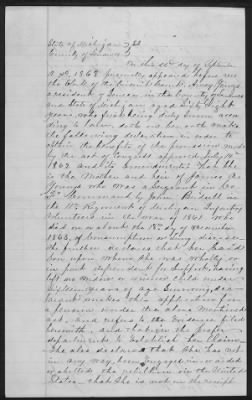 State of Michigan } ss
County of Lenawee }
On this day of April
A.D. 1868 personally appeared before me
the Clerk of the Circuit Court Young
a resident of in the county of Lenawee
and State of Michigan aged eight
years, who first being duly sworn accor-
ding to law, doth on her oath make
the following declaration in order to
obtain the benefits of the provision made
by the act of Congress approved July 14
1862 and its amendments: That she
is the Mother and heir of James
Young who was a Sergeant in Co
Commanded by John
the Regiment of Michigan Infantry
Volunteers in the war of 1861 who
died on or about the day of December
1863, of Consumption or lung disease
She further declares that her said
Son upon whom she was wholly or
in part dependent for support, having
left no widow or minor child under
Sixteen years of age Surviving, decla-
rant makes this application for
a pension under the above Mentioned
act, and refers to the evidence filed
herewith, and that in the proper
departments to establish her claim
She also declares that she has not
in any way been engaged in or aided
or abetted the rebellion in the United
States, that she is not in the receipt